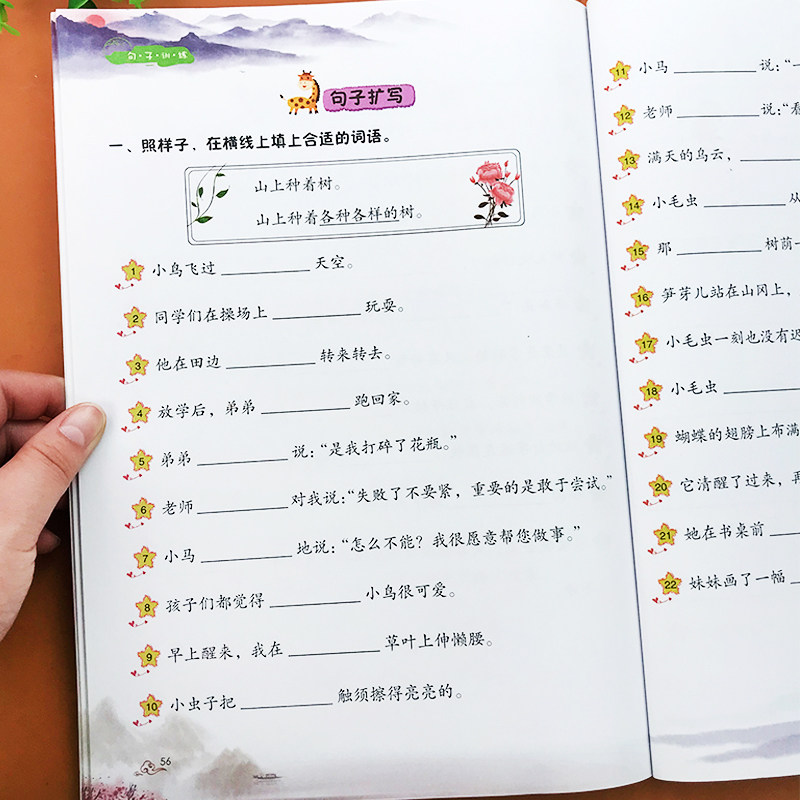 句·子·训·练
句子扩写
一、照样子，在横线上填上合适的词语。
山上种着树。
山上种着各种各样的树。
1 小鸟飞过__________天空。
2 同学们在操场上__________玩耍。
3 他在田边__________转来转去。
4 放学后，弟弟__________跑回家。
5 弟弟__________说：“是我打碎了花瓶。”
6 老师__________对我说：“失败了不要紧，重要的是敢于尝试。”
7 小马__________地说：“怎么不能？我很愿意帮您做事。”
8 孩子们都觉得__________小鸟很可爱。
9 早上醒来，我在__________草叶上伸懒腰。
10 小虫子把__________触须擦得亮亮的。
56
11 小马__________说：“一
12 老师__________说：“看
13 满天的乌云，
14 小毛虫__________从
15 那__________树荫一
16 笋芽儿站在山冈上，
17 小毛虫一刻也没有迟
18 小毛虫
19 蝴蝶的翅膀上布满
20 它清醒了过来，再
21 她在书桌前
22 妹妹画了一幅